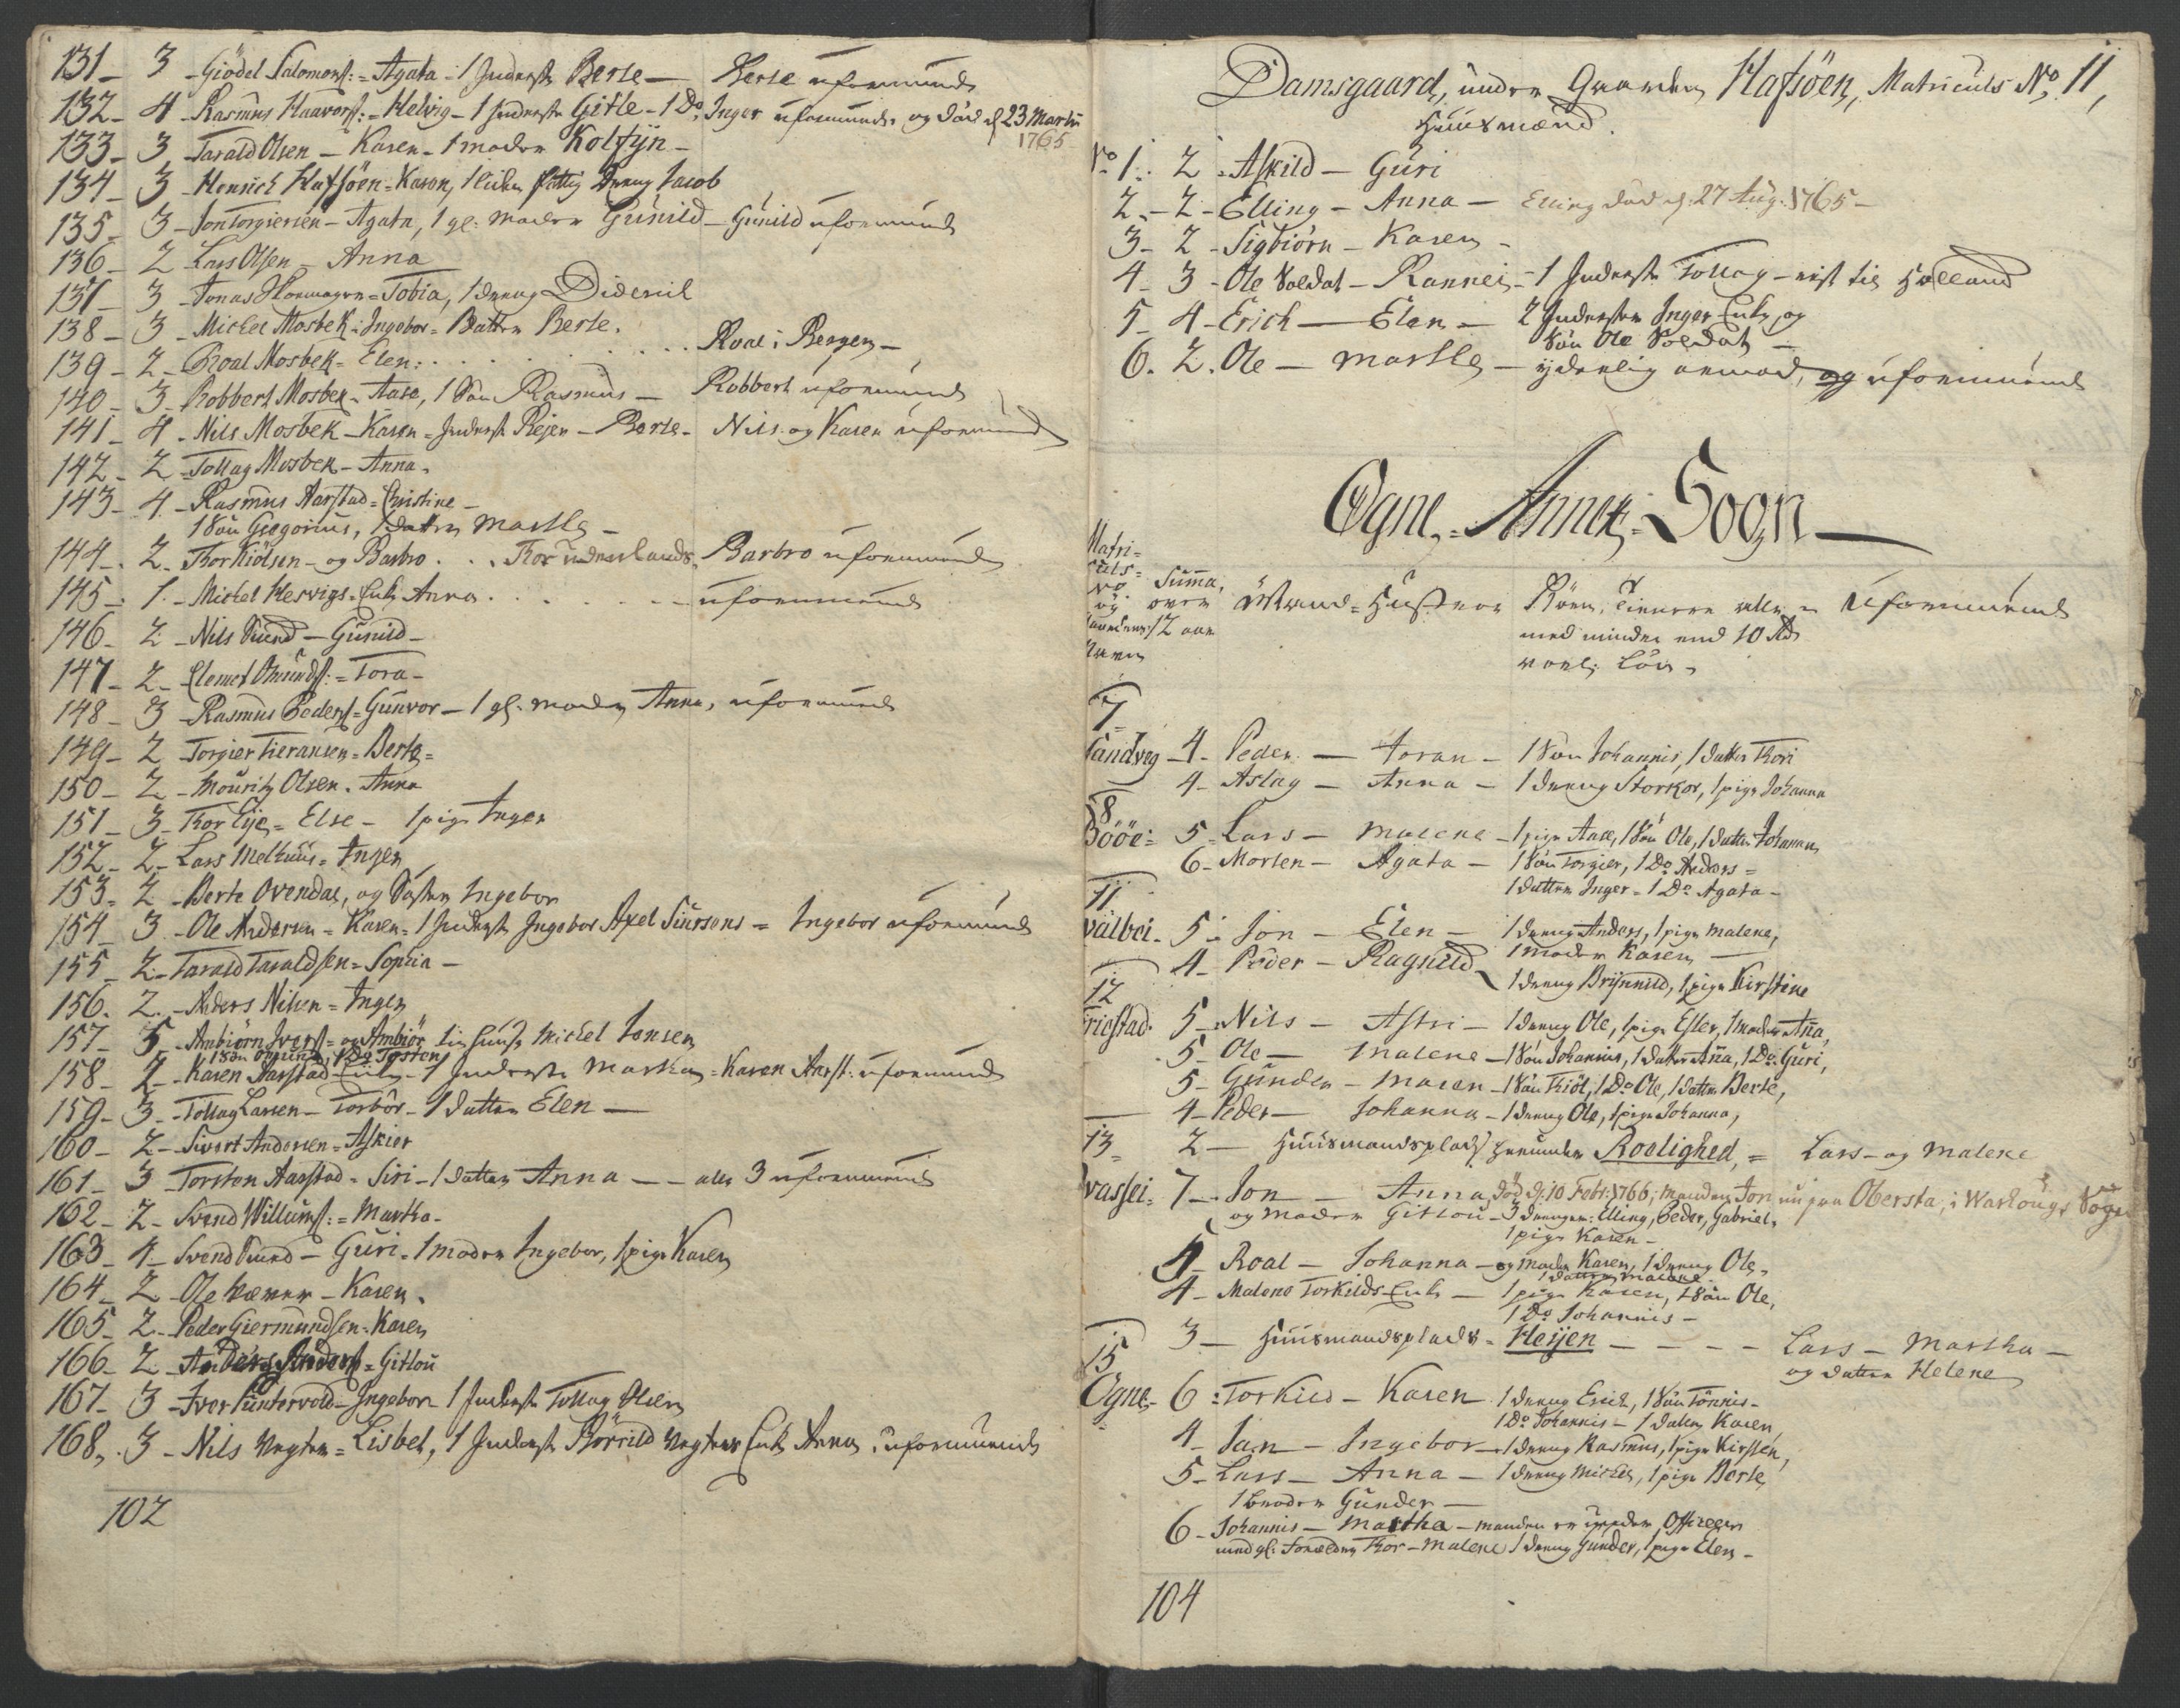 131 - 3 - Giödel Salomons: = Agata - 1 Inderste Berte - Berte uformuende
132 - 4 - Rasmus Haavorst: = Helvig - 1 Inderste Gitle - 1 Do Inger uformuende og död d. 23 Martii 1765
133 - 3 - Tarald Olsen - Karen - 1 moder Kolfijn -
134 - 3 - Henrich Hafsöen = Karen, 1 liden fattig Dreng Jacob
135 - 3 - Jon Torgiersen - Agata, 1 gl: moder Gunild - Gunild uformuende
136 - 2 Lars Olsen - Anna
137 - 3 - Jonas = Tobia, 1 dreng Diderich
138 - 3 - Michel Mosbek = Ingebor = Datter Berte.
139 - 2 - Roal Mosbek = Elen: . . . . Roal i Bergen -
140 - 3 - Robbert Mosbek - Aase, 1 Sön Rasmus - Robbert uformuende
141 - 4 - Nils Mosbek - Karen = Inderst Rejer - Berte - Nils og Karen uformuende
142 - 2 - Tollag Mosbek - Anna -
143 - 4 - Rasmus Aarstad = Christine -
1 Sön Gregorius, 1 datter Marthe -
144 - 2 - Thor Kiölsen - og Barbro . . . Thor udenlands, Barbro uformuende
145 - 1 - Michel Hesvigs = Enke Anna . . . . - - uformuende
146 - 2 - Nils Sund - Gunild -
147 - 2 - Clemet Omunds: = Tora -
148 - 3 - Rasmus Peders = Gunvor - 1 gl: moder Anna, uformuende
149 - 2 Torgier Tieransen = Berte =
150 - 2 - Mouritz Olsen - Anna
151 - 3 - Thor Eije = Else - 1 pige Inger
152 - 2 - Lars Melhuus = Inger
153 - 2 - Berte Ovendal, og Söster Ingebor
154 - 3 - Ole Andersen = Karen = 1 Inderst Ingebor Axel Siursens = Ingebor uformuende
155 - 2 - Tarald Taraldsen = Sophia -
156. 2. - Anders Nilsen = Inger
157 - 5 - Anbiörn Ivers = og Ambiör til huus Michel Jonsen
1 Sön Omund, 1 Do Torsten
158 - 2 - Karen Aarstad Enke - 1 Inderste Martha = Karen Aarst: uformuende
159 - 3 - Tollag Larsen - Torbör - 1 datter Elen -
160 - 2 - Sivert Andersen = Askier
161 - 3 - Torsten Aarstad - Siri - 1 datter Anna - - alle 3 uformuende
162 - 2 - Svend Willums: = Martha -
163 - 4 - Svend Sund - Guri - 1 moder Ingebor, 1 pige Karen
164 - 2 - Ole - Karen.
165 - 2 - Peder Giermundsen - Karen
166 - 2 - Anders Anders = Gitlou
167 - 3 - Iver Puntervold - Ingebor 1 Inderste Tollag Olsen
168. 3 - Nils Vegter = Lisbet, 1 Inderste Börrild Vegters Enke Anna : uformuende
102
Damsgaard, under Gaarden Hafsöen, Matriculs No 11,
Huusmænd.
No 1. 2 - Askild - Guri
2. - 2 - Elling - Anna - Elling död d. 27 Aug. 1765 -
3 - 2 - Sigbiörn - Karen -
4 - 3 - Ole Soldat - Rannei - 1 Inderste Tollag - reist til Holland
5 - 4 - Erich - Elen - 2 Inderster Inger Enke, og
Sön Ole Soldat -
6. 2. Ole - Marthe - yderlig armod, og uformuende
Ogne = Annex = Sogn
Matri=
culs=
No
og
Gaardens
Navn
Summa,
over
12 aar
Mand = Hustroe
Börn, Tienere eller
med mindre end 10 Rd
aarl: Lön -
Uformuende
7
Sandveg - 4 - Peder - Joran - 1 Sön Johannis, 1 datter Thori
4 - Aslag - Anna - 1 dreng Storkor, 1 pige Johanna
8
Bööe: 5 - Lars - Malene - 1 pige Aase, 1 Sön Ole, 1 datter Johanna
6 - Morten - Agata - 1 Sön Torgier, 1 Do Anders =
1 datter Inger - 1 Do Agata -
11
Välbei - 5 - Jon - Elen - 1 dreng Anders, 1 pige Malene,
1 moder Karen -
4 - Peder - Ragnild - 1 dreng Brijnnild, 1 pige Kirstine
12
Friestad. 5 - Nils - Astri - 1 dreng Ole, 1 pige Ester, 1 moder Aña,
5 - Ole - Malene - 1 Sön Johannis, 1 datter Aña, 1 Do Guri,
5 - Gunder - Maren - 1 Sön Kiöl, 1 Do Ole, 1 datter Berte,
4 - Peder - Johanna - 1 dreng Ole, 1 pige Johanna,
13 = 2 - Huusmandsplads herunder Roelighed, = Lars - og Malene
7 - Jon - Anna, död d. 10 Febr: 1766; manden Jon nu paa Obersta, i Warhougs Sogn
og moder Gitlou - 3 drenge: Elling, Peder, Gabriel,
1 pige Karen -
5 - Roal - Johanna - og moder Karen, 1 dreng Ole,
1 datter Malene
4 - Malene Torkilds Enke - 1 pige Karen, 1 Sön Ole,
1 Do Johannis -
3 - Huusmandsplads - Heijen - - - - Lars - Martha -
og datter Helene
15
Ogne - 6 - Torkild - Karen 1 dreng Erich, 1 Sön Tönnis -
1 Do Johannis - 1 datter Karen
4 - Jan - Ingebor - 1 dreng Rasmus, 1 pige Kirsten,
5 - Lars - Anna - 1 dreng Michel, 1 pige Berte,
1 broder Gunder -
6 - Johannis - Martha - manden er Officeer
med gl: Forældre Thor - Malene 1 dreng Gunder, 1 pige Elen -
104